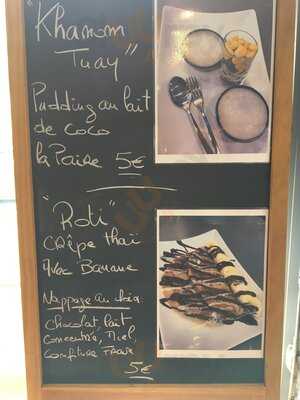 "Khanom
Tuay"
Pudding au lait
de coco
la Paire 5€
"Roti"
crêpe thaï
Avec Banane
Nappage au choix:
Chocolat, lait
concentré, Miel,
Confiture Fraise
5€